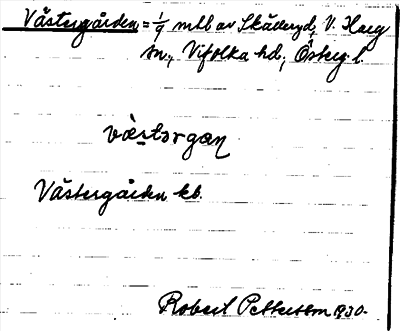 Västergården = 1/9 mtl av Skäderyd, V. Harg
sn., Vifolka hd, Österg. l.
västərgaṇ
Västergården kb.
Robert Pettersson 1930.